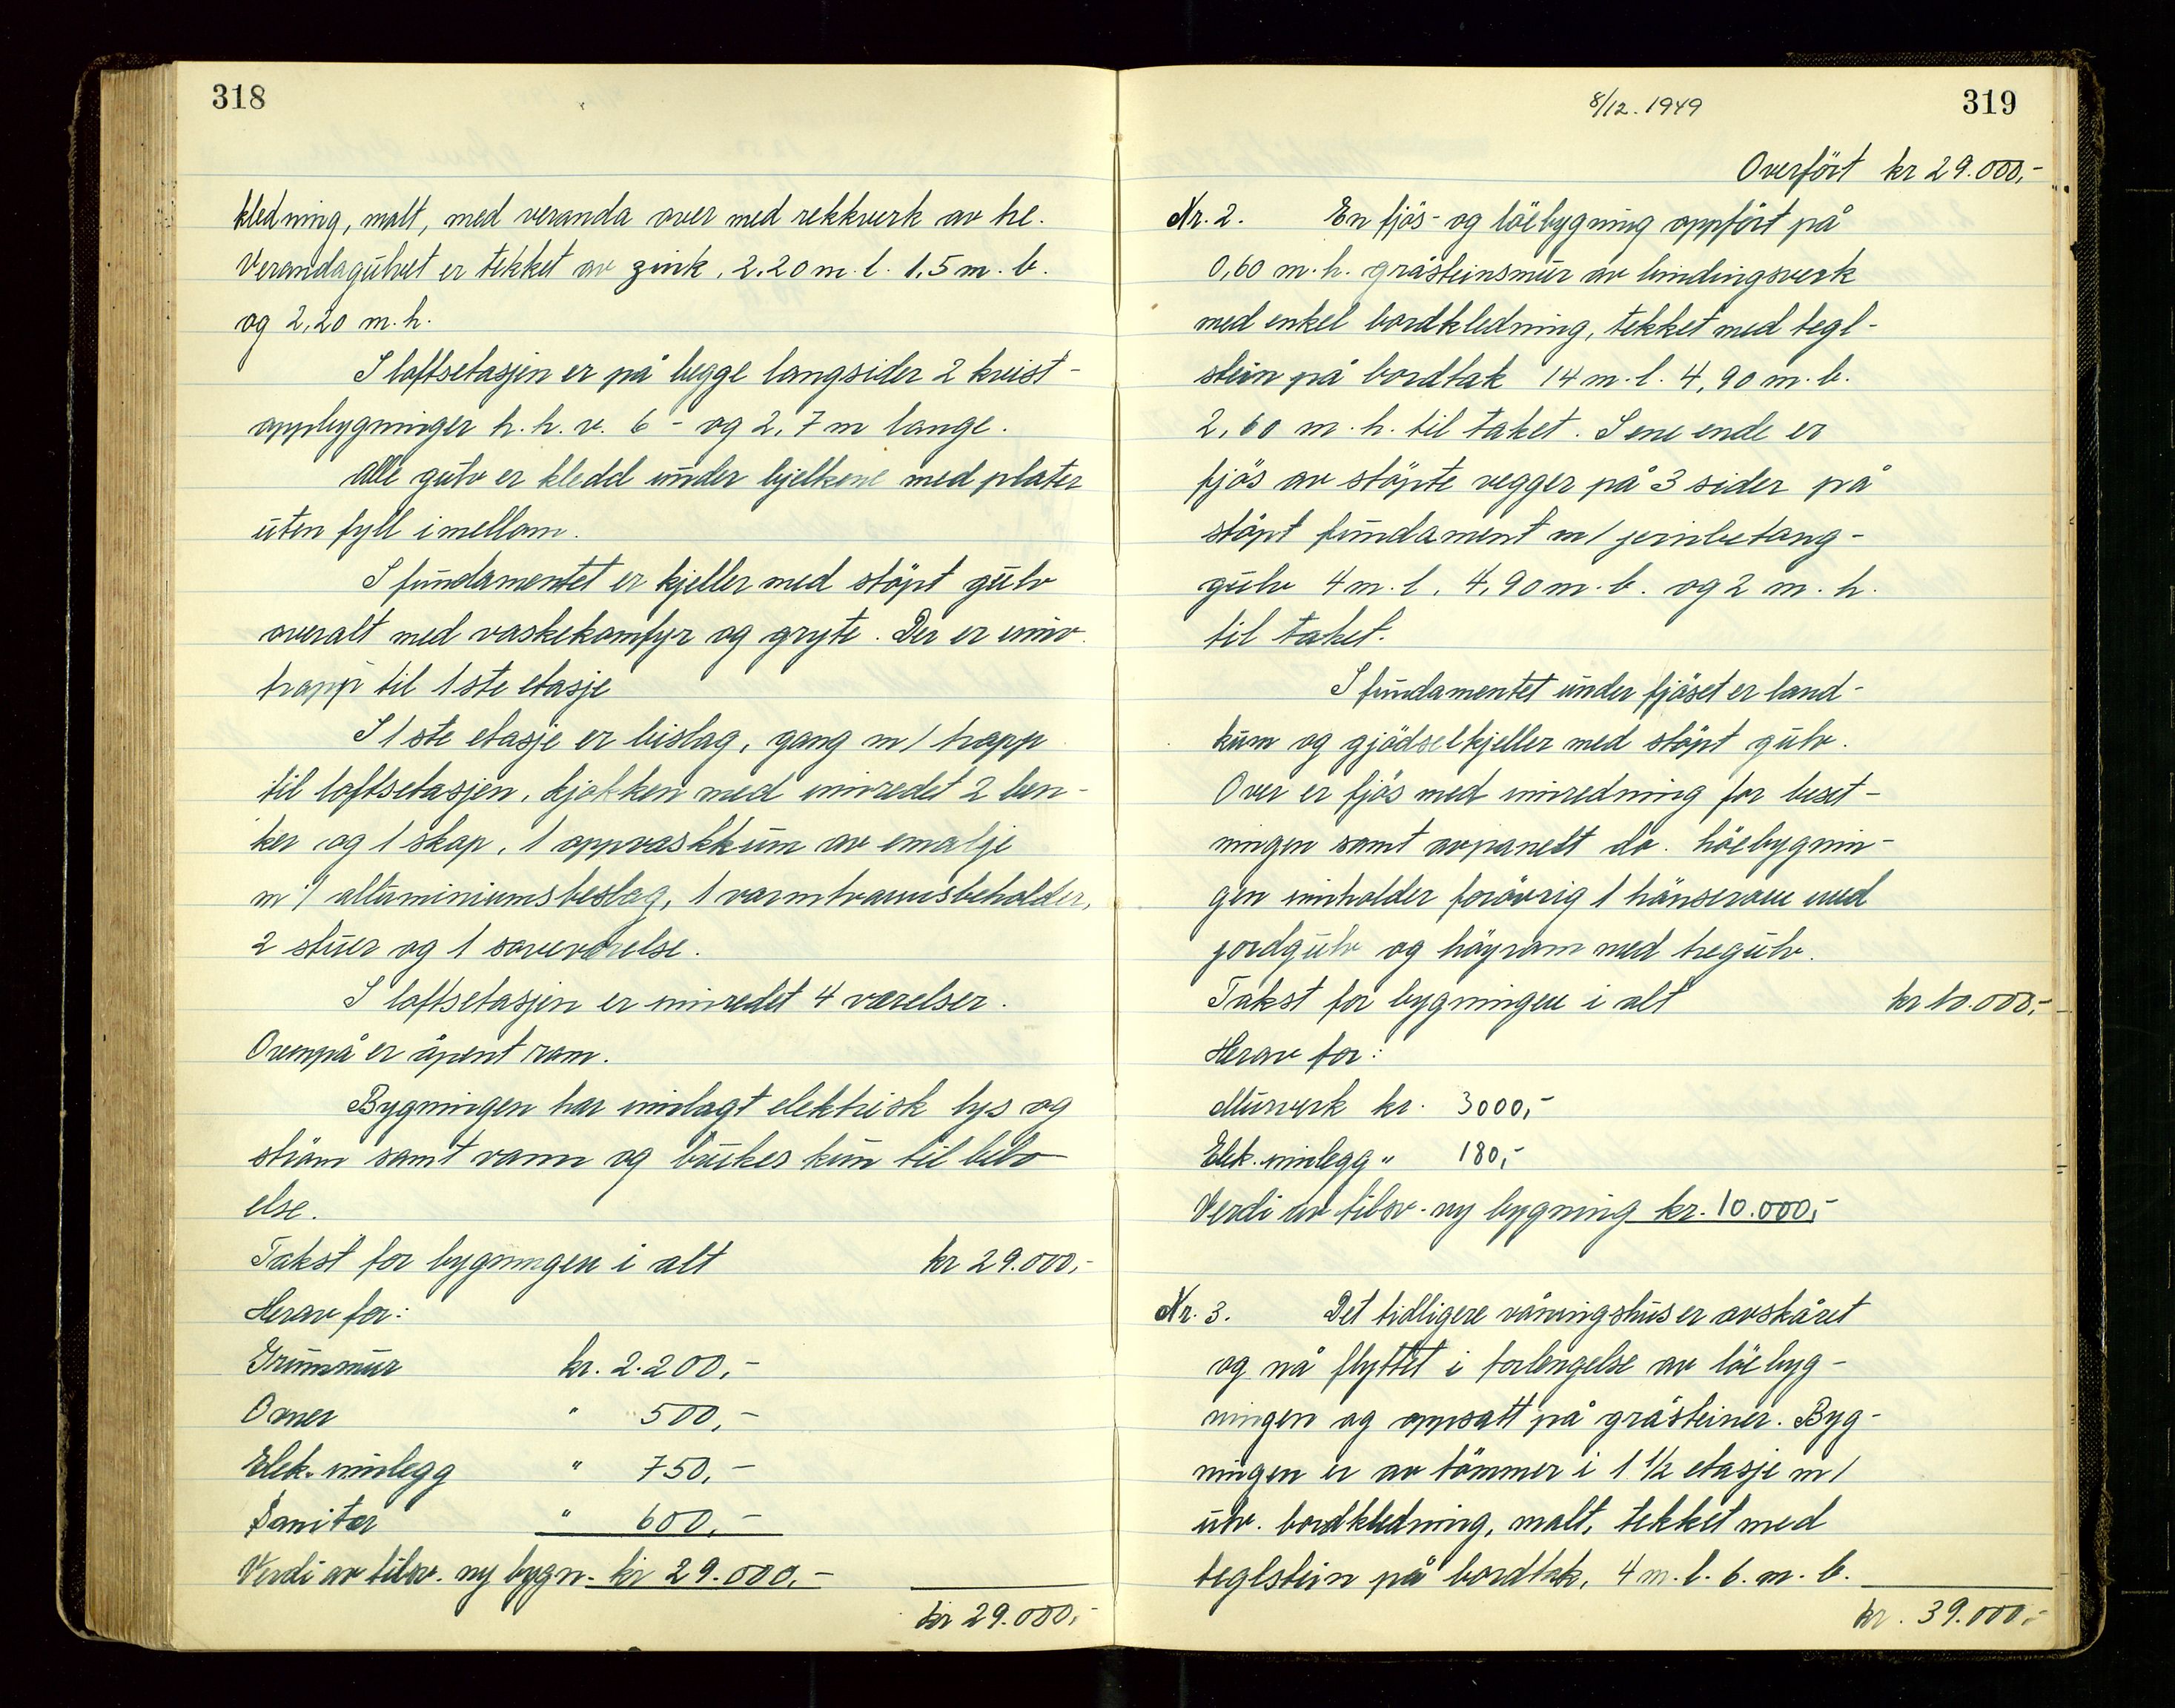 318
kledning, malt, med veranda over med rekkverk av tre.
Verandagulvet er tekket av zink. 2,20 m. l. 1,5 m. b.
og 2,20 m. h.
I loftsetasjen er på begge langsider 2 kvist-
oppbygninger h. h. v. 6 - og 2,7 m lange.
Alle gulv er kledd under bjelkene med plater
uten fyll imellom.
I fundamentet er kjeller med stöpt gulv
overalt med vaskekomfyr og gryte. Der er innv.
trapp til 1ste etasje
I 1ste etasje er bislag, gang m/ trapp
til loftsetasjen, kjökken med innredet 2 ben-
ker og 1 skap, 1 oppvaskkum av emalje
m/ alluminiumsbeslag, 1 varmtvannsbeholder,
2 stuer og 1 soveværelse.
I loftsetasjen er innredet 4 værelser.
Ovenpå er åpent rom.
Bygningen har innlagt elektrisk lys og
ström samt vann og brukes kun til bebo-
else.
Takst for bygningen i alt kr 29.000,-
Herav for:
Grunnmur kr. 2.200,-
Ovner " 500,-
Elek. innlegg " 750,-
Sanitær " 600,-
Verdi av tilsv. ny bygn. kr 29.000,-
kr 29.000,-
8/12. 1949
319
Overfört kr 29.000,-
Nr. 2. En fjös- og löebygning oppfört på
0,60 m. h. gråsteinsmur av bindingsverk
med enkel bordkledning, tekket med tegl-
stein på bordtak 14 m. l. 4,90 m. b.
2,60 m. h. til taket. I ene ende er
fjös av stöpte vegger på 3 sider på
stöpt fundament m/ jernbetong-
gulv 4 m. l. 4,90 m. b. og 2 m. h.
til taket.
I fundamentet under fjöset er land-
kum og gjödselkjeller med stöpt gulv.
Over er fjös med innredning for beset-
ningen samt avpanelt do. Löebygnin-
gen innholder forövrig 1 hönserom med
jordgulv og höyrom med tregulv.
Takst for bygningen i alt kr 10.000,-
Herav for:
Murverk kr. 3000,-
Elek. innlegg " 180,-
Verdi av tilsv. ny bygning kr. 10.000,-
Nr. 3. Det tidligere våningshus er avskåret
og nå flyttet i forlengelse av löebyg-
ningen og oppsatt på gråsteiner. Byg-
ningen er av tömmer i 1 1/2 etasje m/
utv. bordkledning, malt, tekket med
teglstein på bordtak, 4 m. l. 6. m. b.
kr. 39.000,-